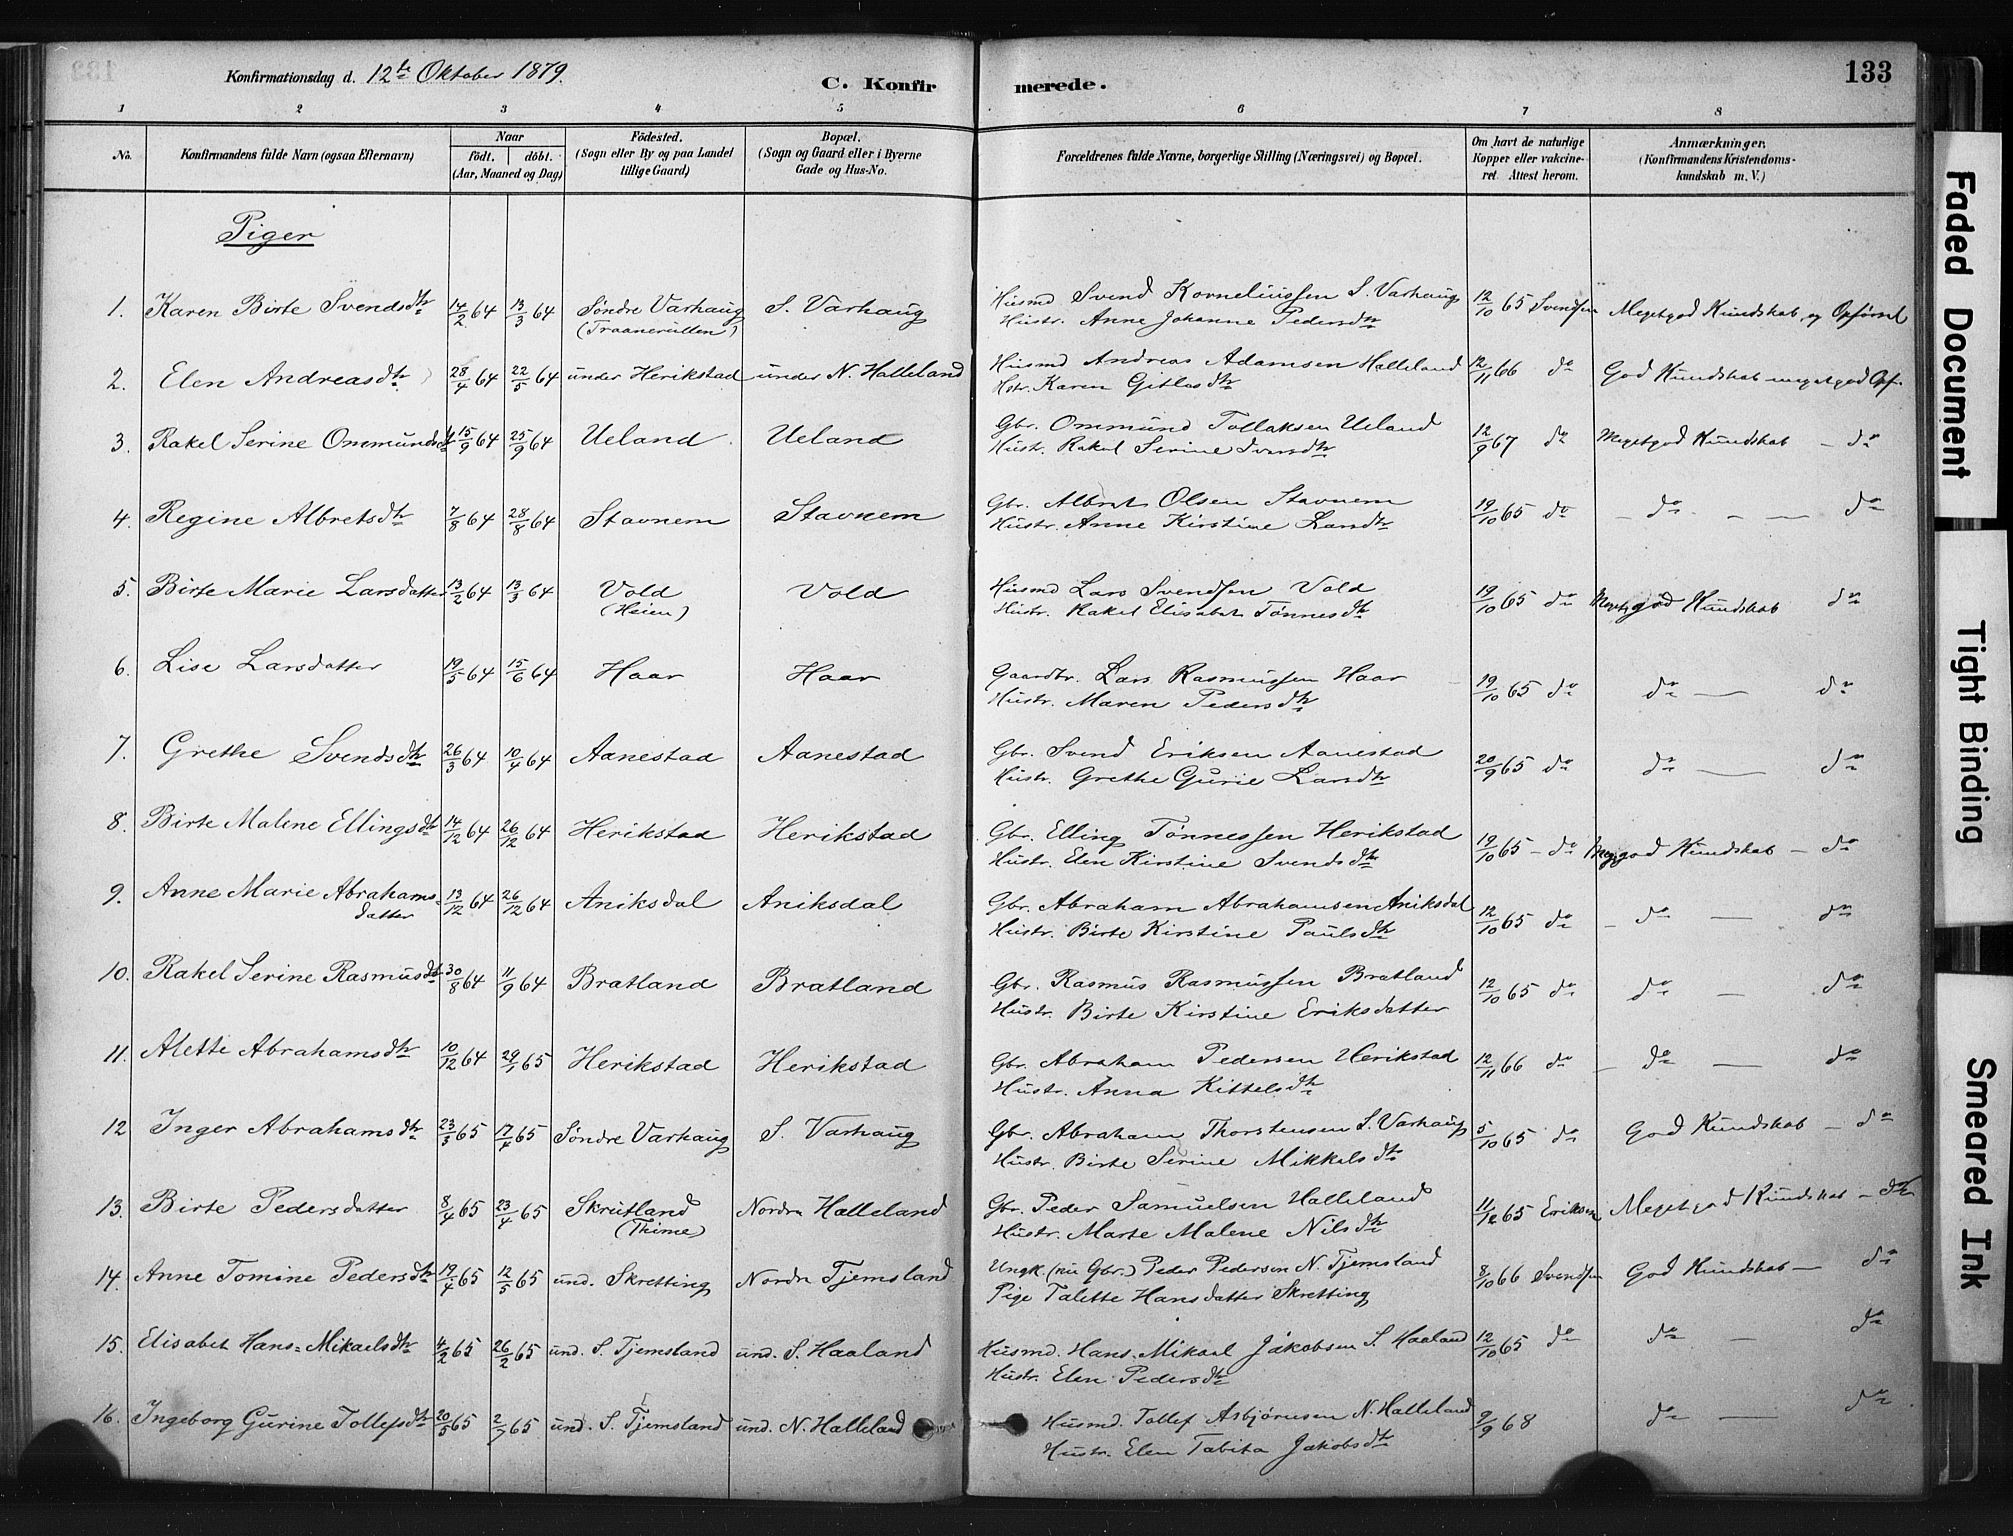 Konfirmationsdag d. 12te Oktober 1879.
C. Konfirmerede.
133
1 2 3 4 5 6 7 8
No.
Konfirmandens fulde Navn (ogsaa Efternavn)
Naar
födt. döbt.
(Aar, Maaned og Dag)
Födested.
(Sogn eller By og paa Landet
tillige Gaard)
Bopæl.
(Sogn og Gaard eller i Byerne
Gade og Hus-No.
Forældrenes fulde Navne, borgerlige Stilling (Næringsvei) og Bopæl.
Om havt de naturlige
Kopper eller vakcine-
ret. Attest herom.
Anmærkninger.
(Konfirmandens Kristendoms-
kundskab m. V.)
Piger
1. Karen Birte Svendsdtr 14/2 64 13/3 64 Søndre Varhaug (Traanerullen) S. Varhaug Husmd Svend Korneliussen S. Varhaug
Hustr. Anne Johanne Pedersdtr 12/10 65 Svendsen Megetgod Kundskab og Opførsel
2. Elen Andreasdtr 28/4 64 22/5 64 under Herikstad under N. Halleland Husmd Andreas Adamsen Halleland
Hstr. Karen Gitlesdtr 12/11 66 do God Kundskab megetgod Opf.
3. Rakel Serine Ommundsdtr 15/9 64 25/9 64 Ueland Ueland Gbr. Ommund Tollaksen Ueland
Hustr. Rakel Serine Iversdtr 12/9 67 do Megetgod Kundskab - do
4. Regine Albretsdtr 7/8 64 28/8 64 Stavnem Stavnem Gbr. Albret Olsen Stavnem
Hustr. Anne Kirstine Larsdtr 19/10 65 do - do - - do
5. Birte Marie Larsdatter 13/2 64 13/3 64 Vold (Heien) Vold Husmd Lars Svendsen Vold
Hustr. Rakel Elisabet Tønnesdtr 19/10 65 do Megetgod Kundskab do
6. Lise Larsdatter 19/5 64 15/6 64 Haar Haar Gaardbr. Lars Rasmussen Haar
Hustr. Maren Pedersdtr 19/10 65 do do - do
7. Grethe Svendsdtr 26/3 64 10/4 64 Aanestad Aanestad Gbr. Svend Eriksen Aanestad
Hustr. Grethe Gurie Larsdtr 20/9 65 do do - do
8. Birte Malene Ellingsdtr 14/12 64 26/12 64 Herikstad Herikstad Gbr. Elling Tønnessen Herikstad
Hustr. Elen Kirstine Svendsdtr 19/10 65 - do Megetgod Kundskab - do
9. Anne Marie Abrahams-
datter 13/12 64 26/12 64 Aniksdal Aniksdal Gbr. Abraham Abrahamsen Aniksdal
Hustr. Birte Kirstine Paulsdtr 12/10 65 do - do - do
10. Rakel Serine Rasmusdtr 30/8 64 11/9 64 Bratland Bratland Gbr. Rasmus Rasmussen Bratland
Hustr. Birte Kirstine Eriksdatter 12/10 65 do do - do
11. Alette Abrahamsdtr 10/12 64 29/1 65 Herikstad Herikstad Gbr. Abraham Pedersen Herikstad
Hustr. Anna Kittelsdtr 12/11 66 do - do - do
12 Inger Abrahamsdtr 23/3 65 17/4 65 Søndre Varhaug S. Varhaug Gbr. Abraham Thorstensen S. Varhaug
Hustr. Birte Serine Mikkelsdtr 5/10 65 do God Kundskab - do
13. Birte Pedersdatter 8/4 65 23/4 65 Skrutland (Thime) Nordre Halleland Gbr. Peder Samuelsen Halleland
Hustr. Marte Malene Nilsdtr 11/12 65 Eriksen Megetgod Kundskab - do
14. Anne Tomine Pedersdtr 19/4 65 12/5 65 und. Skretting Nordre Tjemsland Ungk. (nu Gbr.) Peder Pedersen N. Tjemsland
Pige Talette Hansdatter Skretting 8/10 66 Svendsen God Kundskab - do
15. Elisabet Hans-Mikaelsdtr 4/2 65 26/2 65 und. S. Tjemsland und. S. Haaland Husmd. Hans Mikael Jakobsen S. Haaland
Hustr. Elen Pedersdtr 12/10 65 do do - do
16. Ingeborg Gurine Tollefsdtr 20/5 65 2/7 65 und. S. Tjemsland und. N. Halleland Husmd. Tollef Asbjørnsen N. Halleland
Hustr. Elen Tabita Jakobsdtr 9/9 68 do - do
Faded Document
Tight Binding
Smeared Ink